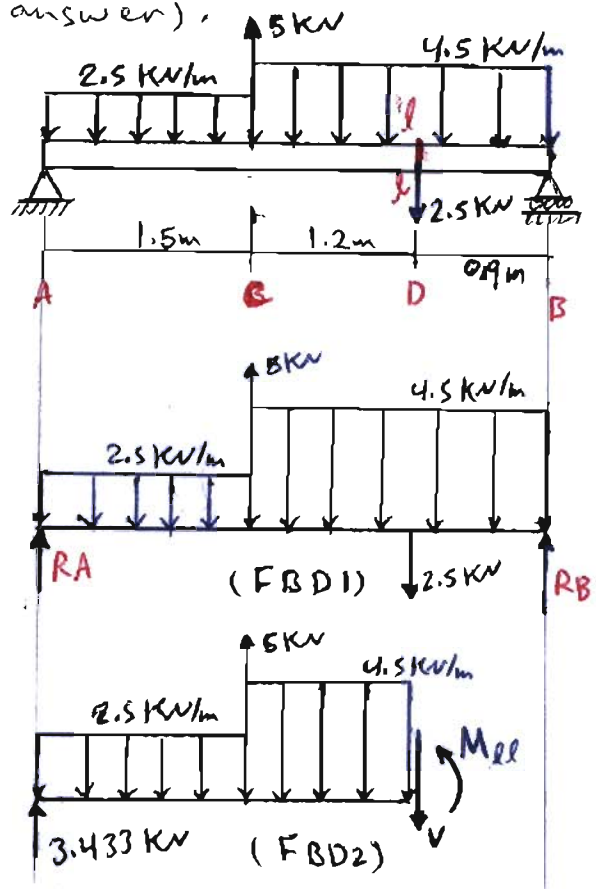 answer).
5KN
4.5 KN/m
2.5 KN/m
l
l
2.5KN
1.5m
1.2m
0.9m
A
C
D
B
5KN
4.5 KN/m
2.5 KN/m
RA
(FBD1)
2.5KN
RB
5KN
4.5KN/m
2.5 KN/m
Mll
V
3.433 KN
(FBD2)